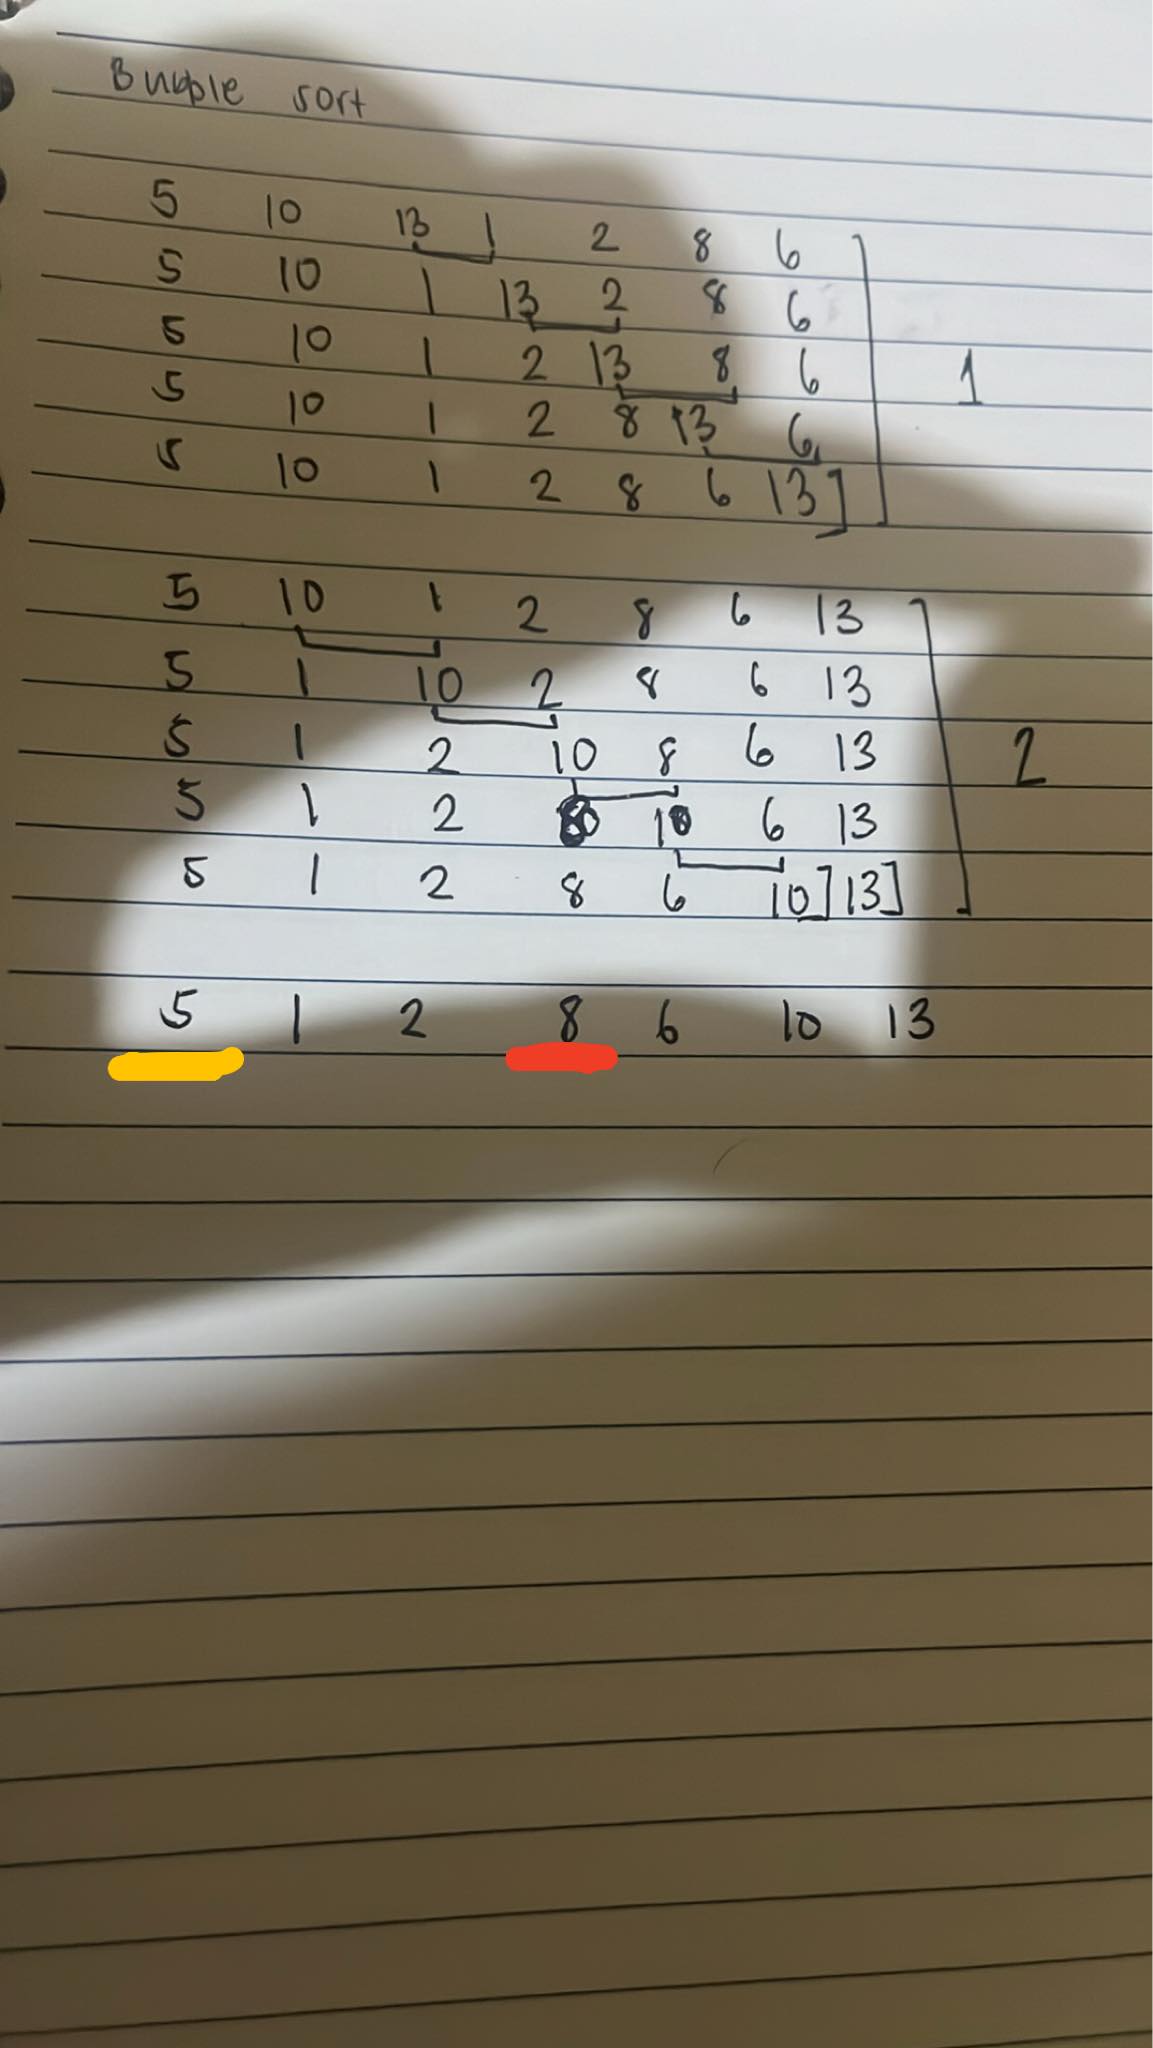 Bubble sort
5 10 13 1 2 8 6
5 10 1 13 2 8 6
5 10 1 2 13 8 6
5 10 1 2 8 13 6
5 10 1 2 8 6 13]
1
5 10 1 2 8 6 13
5 1 10 2 8 6 13
5 1 2 10 8 6 13
5 1 2 8 10 6 13
5 1 2 8 6 10] 13]
2
5 1 2 8 6 10 13